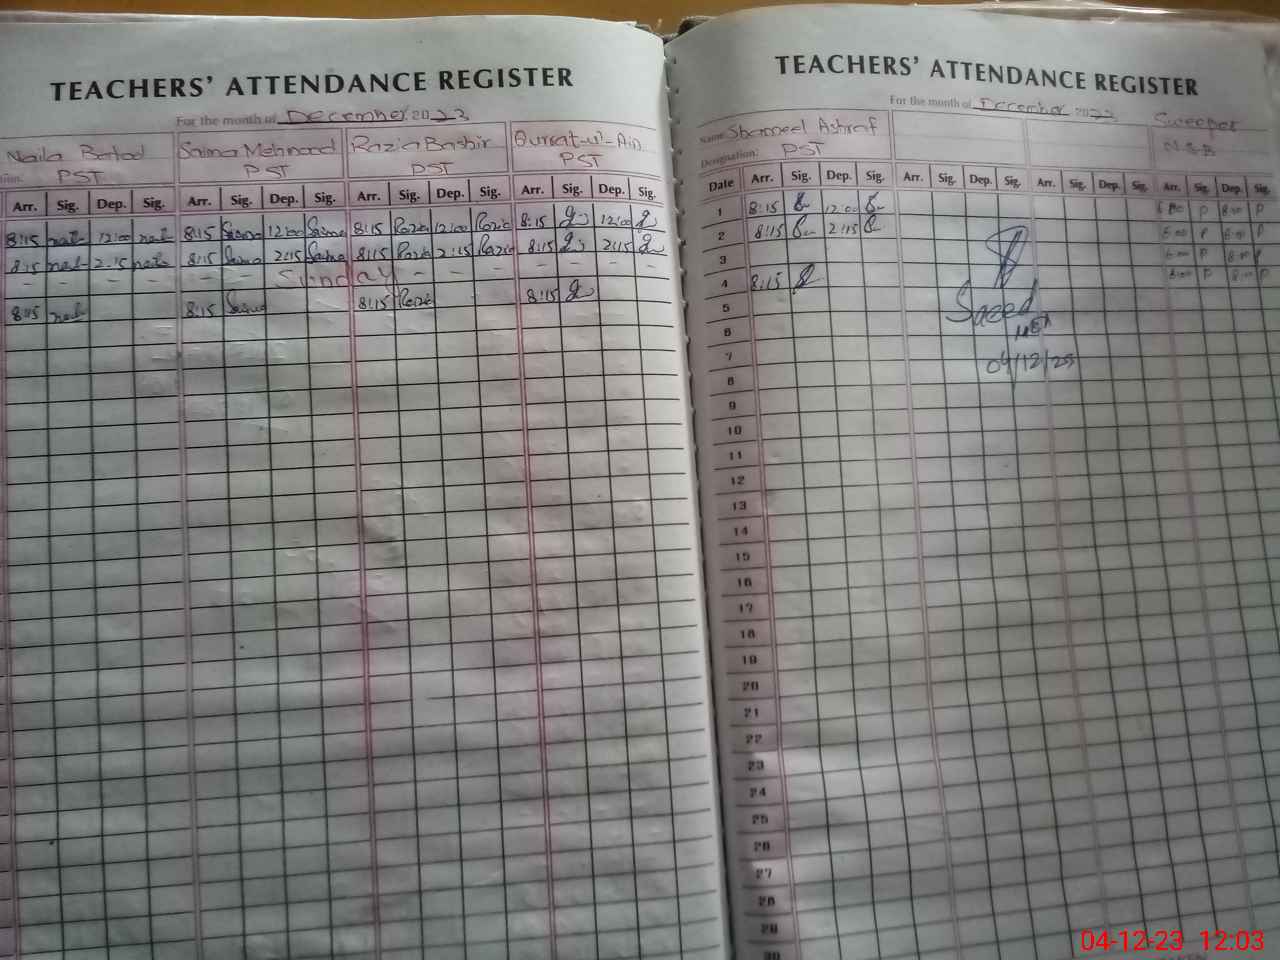 TEACHERS' ATTENDANCE REGISTER
For the month of December 2023
Naila PST Saima Mehmood PST Razia Bashir PST Qurrat-ul-Ain PST
Arr. Sig. Dep. Sig. Arr. Sig. Dep. Sig. Arr. Sig. Dep. Sig. Arr. Sig. Dep. Sig.
8:15 12:00 8:15 Saima 12:00 Saima 8:15 Razia 12:00 Razia 8:15 12:00
8:15 2:15 8:15 Saima 2:15 Saima 8:15 Razia 2:15 Razia 8:15 2:15
Sunday
8:15 8:15 Saima 8:15 Razia 8:15
TEACHERS' ATTENDANCE REGISTER
For the month of December 2023
Name Shameel Ashraf Sweeper
Designation: PST N.S.B
Date Arr. Sig. Dep. Sig. Arr. Sig. Dep. Sig. Arr. Sig. Dep. Sig. Arr. Sig. Dep. Sig.
1 8:15 12:00 8:00 P 8:00 P
2 8:15 2:15 8:00 P 8:00 P
3 8:00 P 8:00 P
4 8:15 8:00 P 8:00 P
5 Saeed
6
7 04/12/23
8
9
10
11
12
13
14
15
16
17
18
19
20
21
22
23
24
25
26
27
28
29
30
04-12-23 12:03